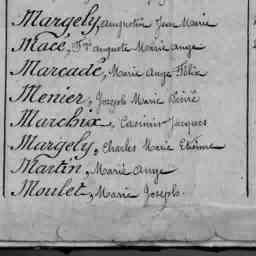 Margely, Augustin Jean Marie
Macé, Fçois Auguste Marie Ange
Marcadé, Marie Ange Félix
Menier, Joseph Marie Désiré
Marchix, Casimir Jacques
Margely, Charles Marie Etienne
Martin, Marie Ange
Moulet, Marie Joseph